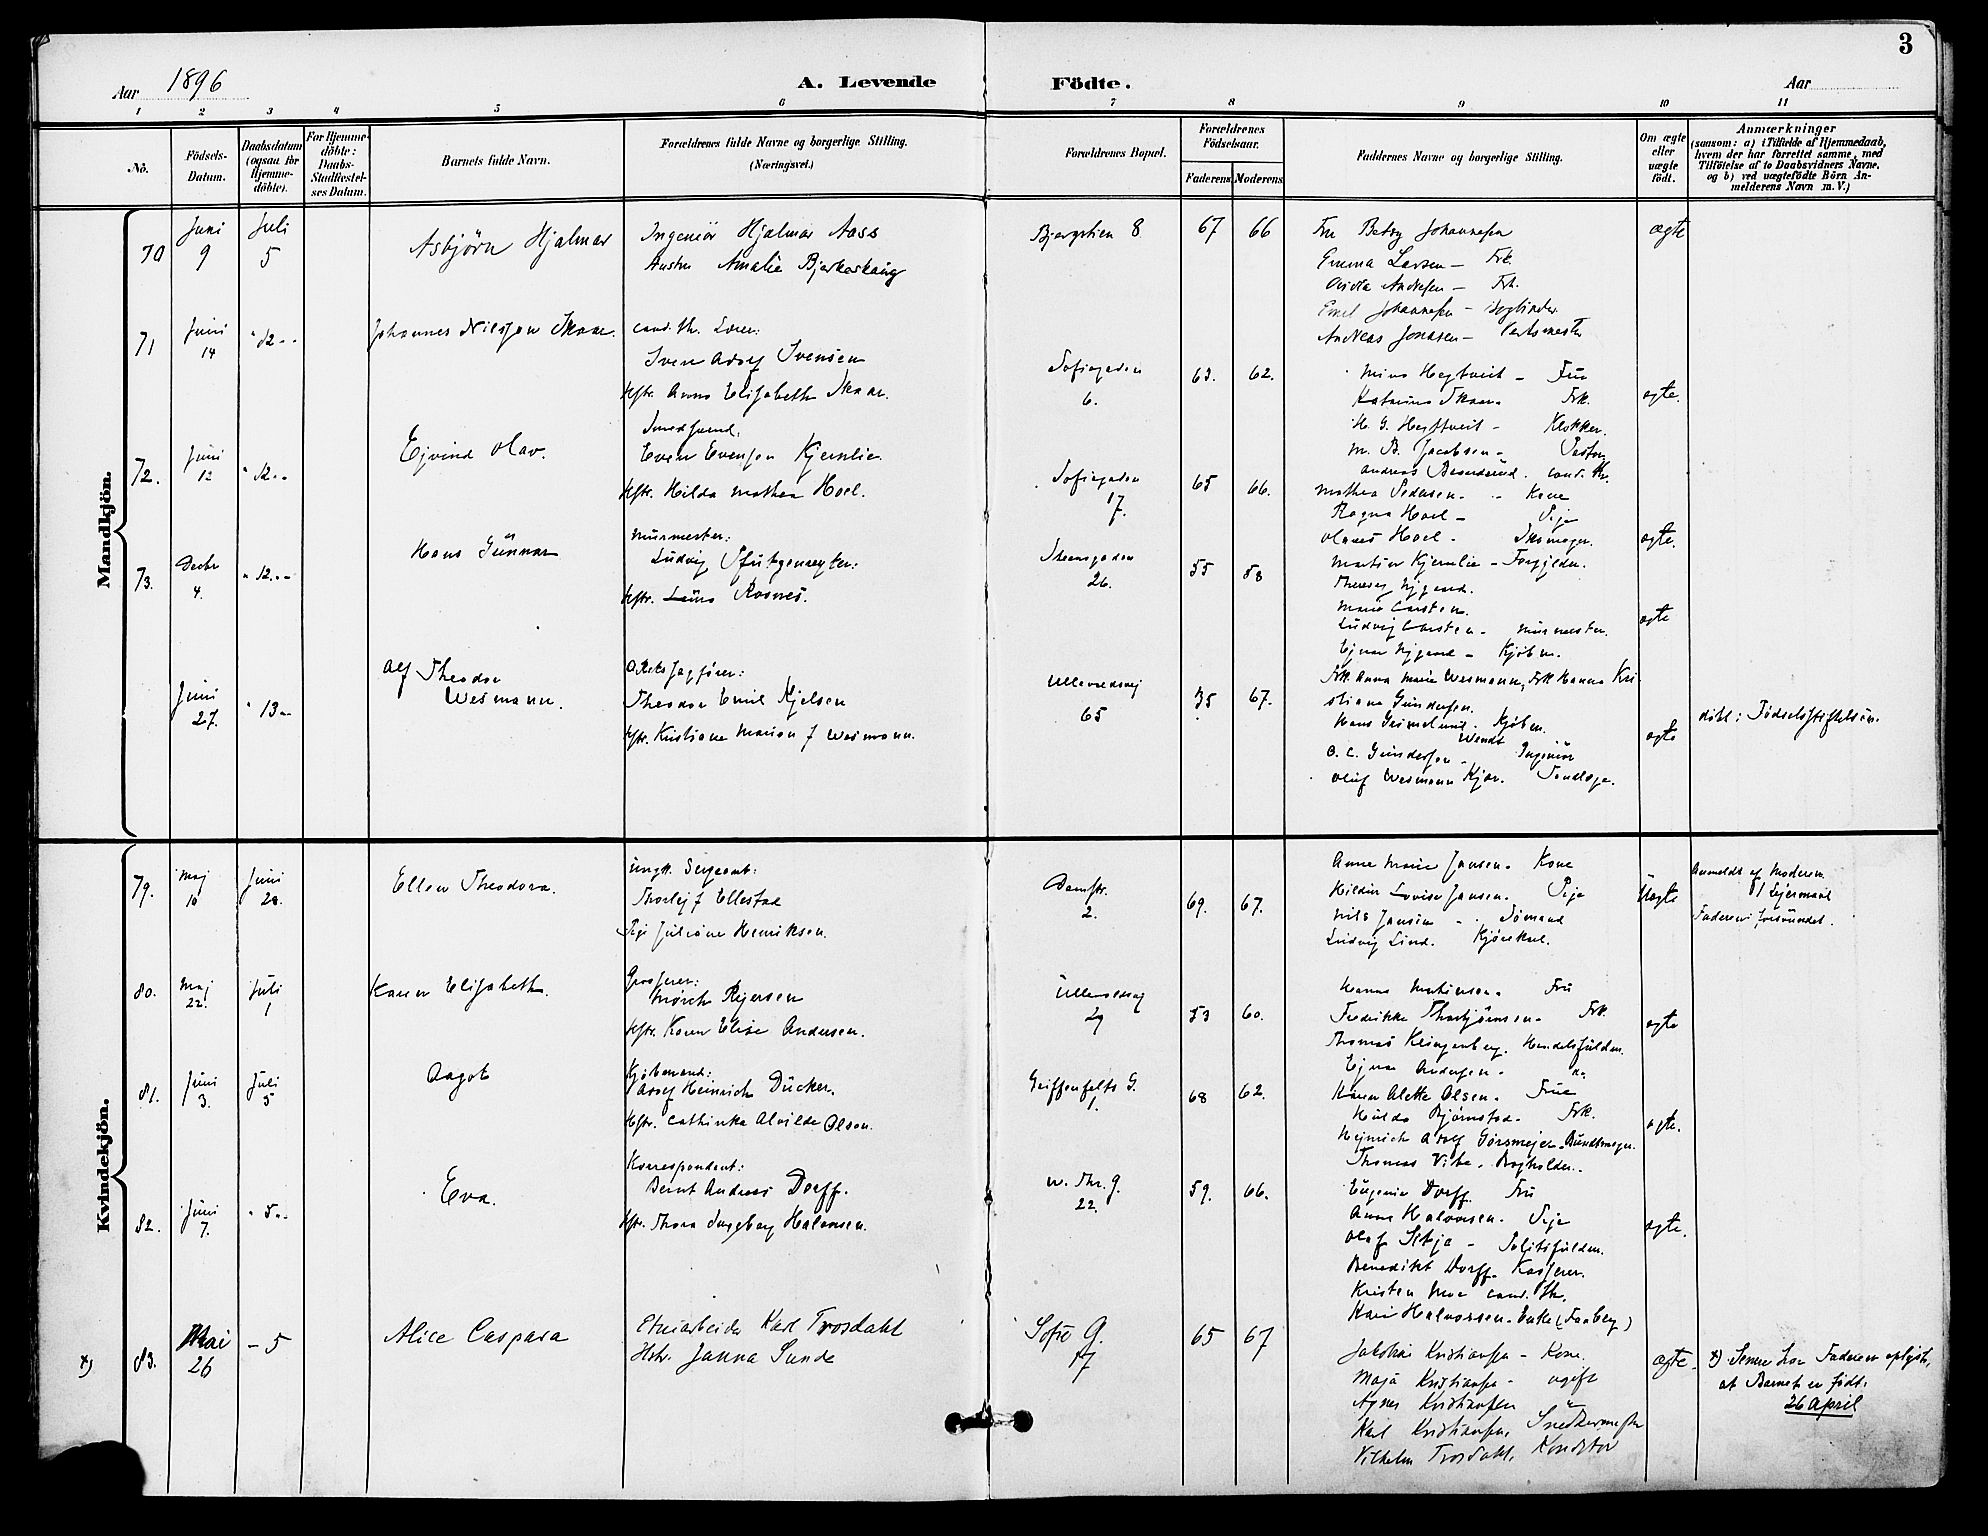 3
Aar 1896
A. Levende Födte.
Aar
1 2 3 4 5 6 7 8 9 10 11
No.
Födsels-Datum.
Daabsdatum (ogsaa for Hjemme-döbte).
For Hjemme-döbte: Daabs-Stadfæstel-ses Datum.
Barnets fulde Navn.
Forældrenes fulde Navne og borgerlige Stilling. (Næringsvei.)
Forældrenes Bopæl.
Forældrenes Födselsaar.
Faderens Moderens
Faddernes Navne og borgerlige Stilling.
Om ægte eller uægte födt.
Anmærkninger
(saasom: a) i Tilfælde af Hjemmedaab, hvem der har forrettet samme, med Tilföielse af to Daabsvidners Navne. og b) ved uægtefödte Börn An-melderens Navn m. V.)
Mandkjön.
70 Juni 9 Juli 5 Asbjörn Hjalmar
Ingeniör Hjalmar Aass
Hustru Amalie Bjerkeskaug
Bjergstien 8 67 66
Fru Betsy Johannesen
Emma Larsen — Frk.
Andrea Jonassen
ægte
71 Juni 14 " 12 " Johannes Nilssøn Skaar.
cand. th. Lærer:
Sven Adolf Svensen
Hstr. Anna Elisabeth Skaar.
Sofiegaden 6. 63. 62.
Mina Hegtveit — Frue
Katrina Skaar Frk.
H. G. Hegtveit — Klokker.
M. B. Jacobsen — Pastor
ægte.
72. Juni 12 " 12 " Ejvind Olav.
Smedsvend:
Even Evensen Kjernlie
Hstr. Hilda Mathea Hoel.
Sofiegaden 17. 65 66.
Mathea Pedersen — Kone
Ragna Hoel — Pige
Hoel — Skomager.
Martin Kjernlie — Forgylder.
ægte.
73. Decbr 4. " 12 " Hans Gunnar
Murmester:
Ludvig
Hstr. Rosnes.
26. 55 58
Nygaard.
Marie Carsten.
Ludvig Carsten — Murmester.
Ejnar Nygaard — Kjøbm.
ægte
Juni 27. " 13 " Alf Theodor Wesmann.
O.Retssagfører:
Theodor Emil Kjelsen
Hstr. Kristiane Marion f. Wesmann.
Ullevoldsvej 65 35 67.
Frk Anna Marie Wesmann, Frk Hanna Kristiane Gundersen.
Hans Grimelund. Kjøbm.
O. C. Gundersen Wendt Ingeniör
Oluf Wesmann Kjær. Tandlæge.
ægte
döbt i Fødselsstiftelsen.
Kvindekjön.
79. Maj 10 Juni 28. Ellen Theodora.
Ungk. Sergeant:
Thorleif Ellestad
Pige Juliane Henriksen.
Damstr. 2. 69. 67.
Anne Marie Jansen. Kone
Hildur Lovise Jansen. Pige
Nils Jansen — Sømand
Ludvig Lind. Kjørekarl.
Uægte
Anmeldt af Moderen.
1ste Leiermaal
Faderen forsvundet.
80. Maj 22. Juli 1 Karen Elisabeth.
Grosserer:
Mørch Rejersen
Hstr. Karen Elise Andersen.
Ullevoldsvej 29 53 60.
Hanna Mathiesen. Fru
Fredrikke Thorbjørnsen. Frk.
Thomas Klingenberg. Handelsfuldm.
Ejnar Andersen — do
ægte
81. Juni 3. Juli 5 Aagot
Kjøbmand:
Adolf Heinrich Dücker.
Hstr. Cathinka Alvilde Olsen.
Griffenfelts G. 1. 68 62.
Karen Alette Olsen. Frue
Hulda Bjørnstad. Frk.
Hejnrich Adolf Görsmejer. Bundtmager.
Thomas Vibe. Bogholder.
ægte.
82. Juni 7. " 5 " Eva.
Korrespondent:
Bernt Andreas Dorff.
Hstr. Thora Ingeborg Halvorsen.
W. Thr. g. 22. 59. 66.
Eugenie Dorff. Fru
Anna Halvorsen. Pige
Olaf Sitje — Politifuldm.
Benedikt Dorff. Kasserer.
Kristen Moe cand. th.
Kari Halvorsen. Enke (Faaberg)
ægte.
x) 83. Mai 26 — 5 Alice Caspara
Etuiarbeider Karl Trosdahl
Hstr. Janna Sunde
Sofie G. 17 65 67
Jakobine Kristiansen — Kone.
Maja Kristiansen — ugift
Agnes Kristiansen "
Karl Kristiansen, Snedkermester
Vilhelm Trosdahl, Konditor
ægte.
x) Senere har Faderen oplyst,
at Barnet er født:
26 April